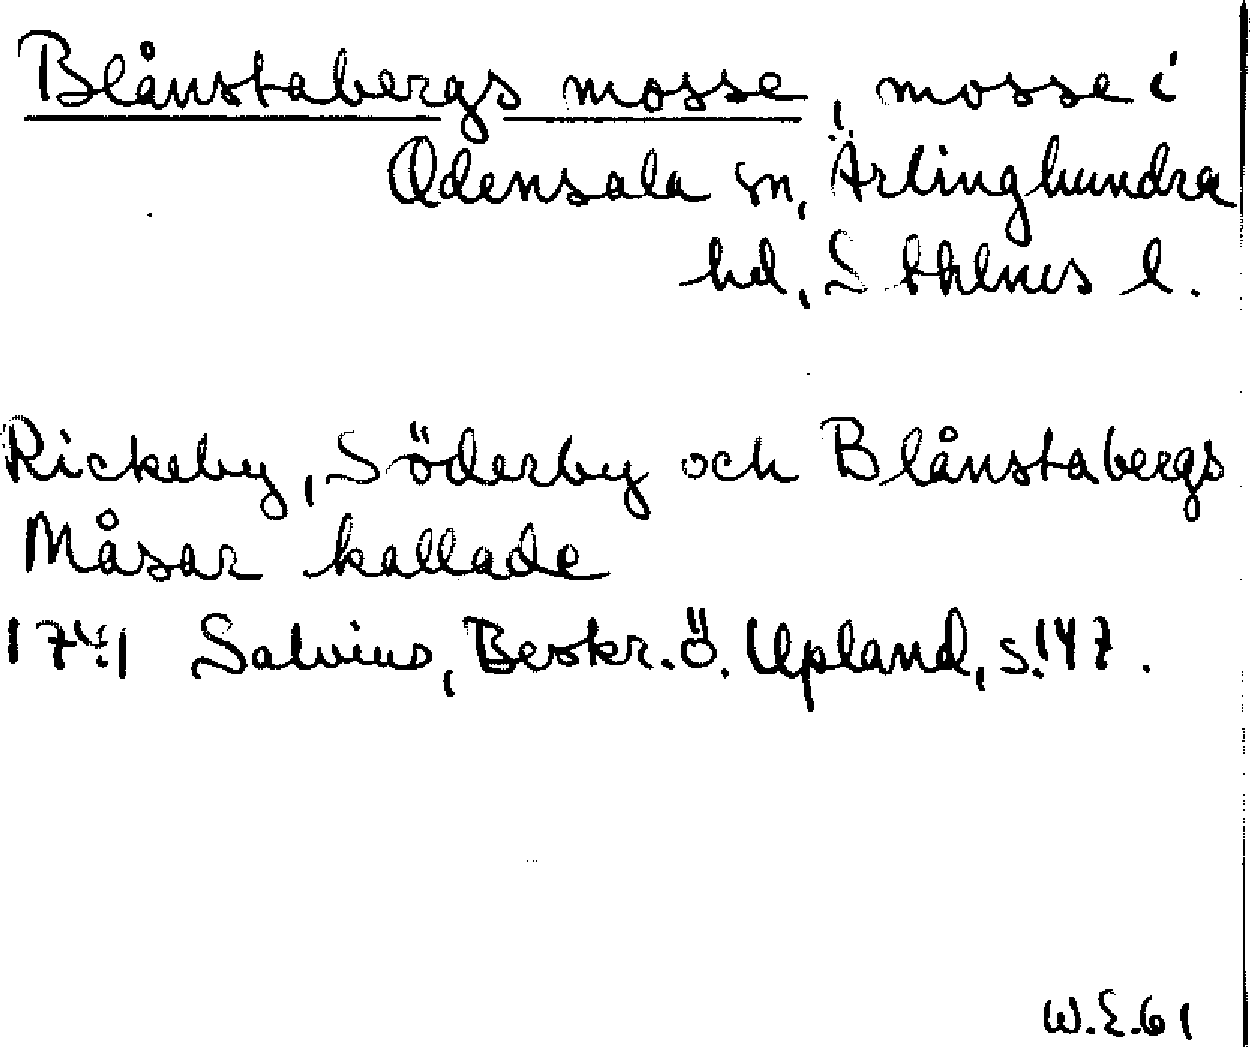 Blånstabergs mosse, mosse i
Odensala sn, Ärlinghundra
hd, Sthlms l.
Rickeby, Söderby och Blånstabergs
Måsar kallade
1741 Salvius, Beskr. Ö. Upland, s. 147.
W.E.61